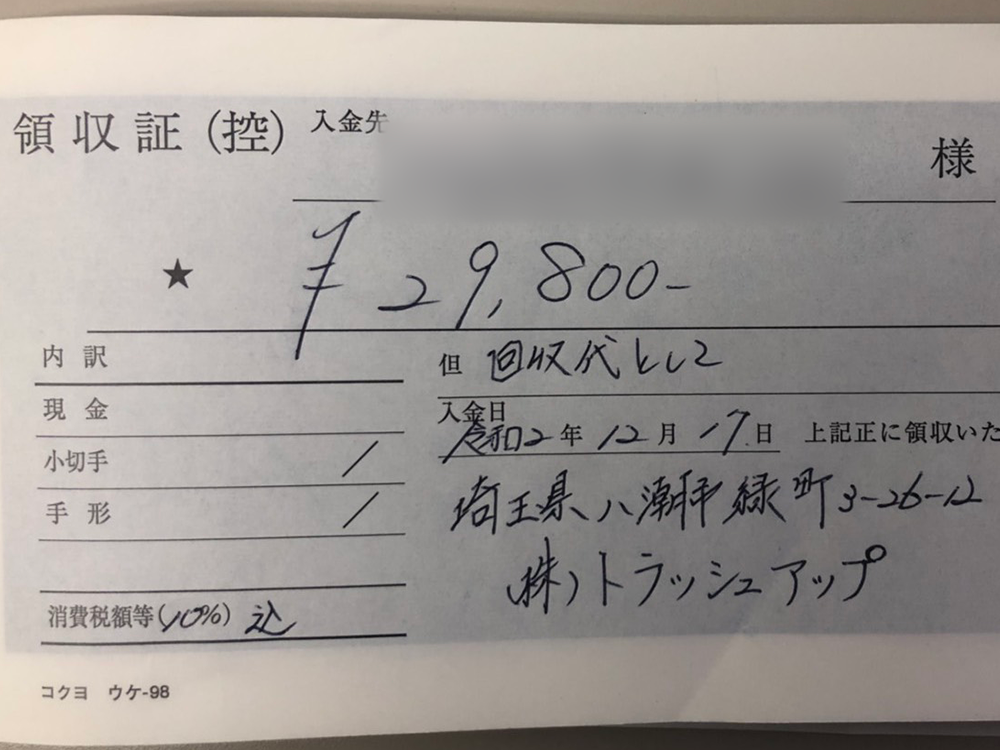 領収証(控) 入金先 様
★ ¥29,800-
内訳
但 回収代として
現金
入金日
令和2年12月17日 上記正に領収いた
小切手 /
手形 /
埼玉県八潮市緑町3-26-12
(株)トラッシュアップ
消費税額等(10%) 込
コクヨ ウケ-98